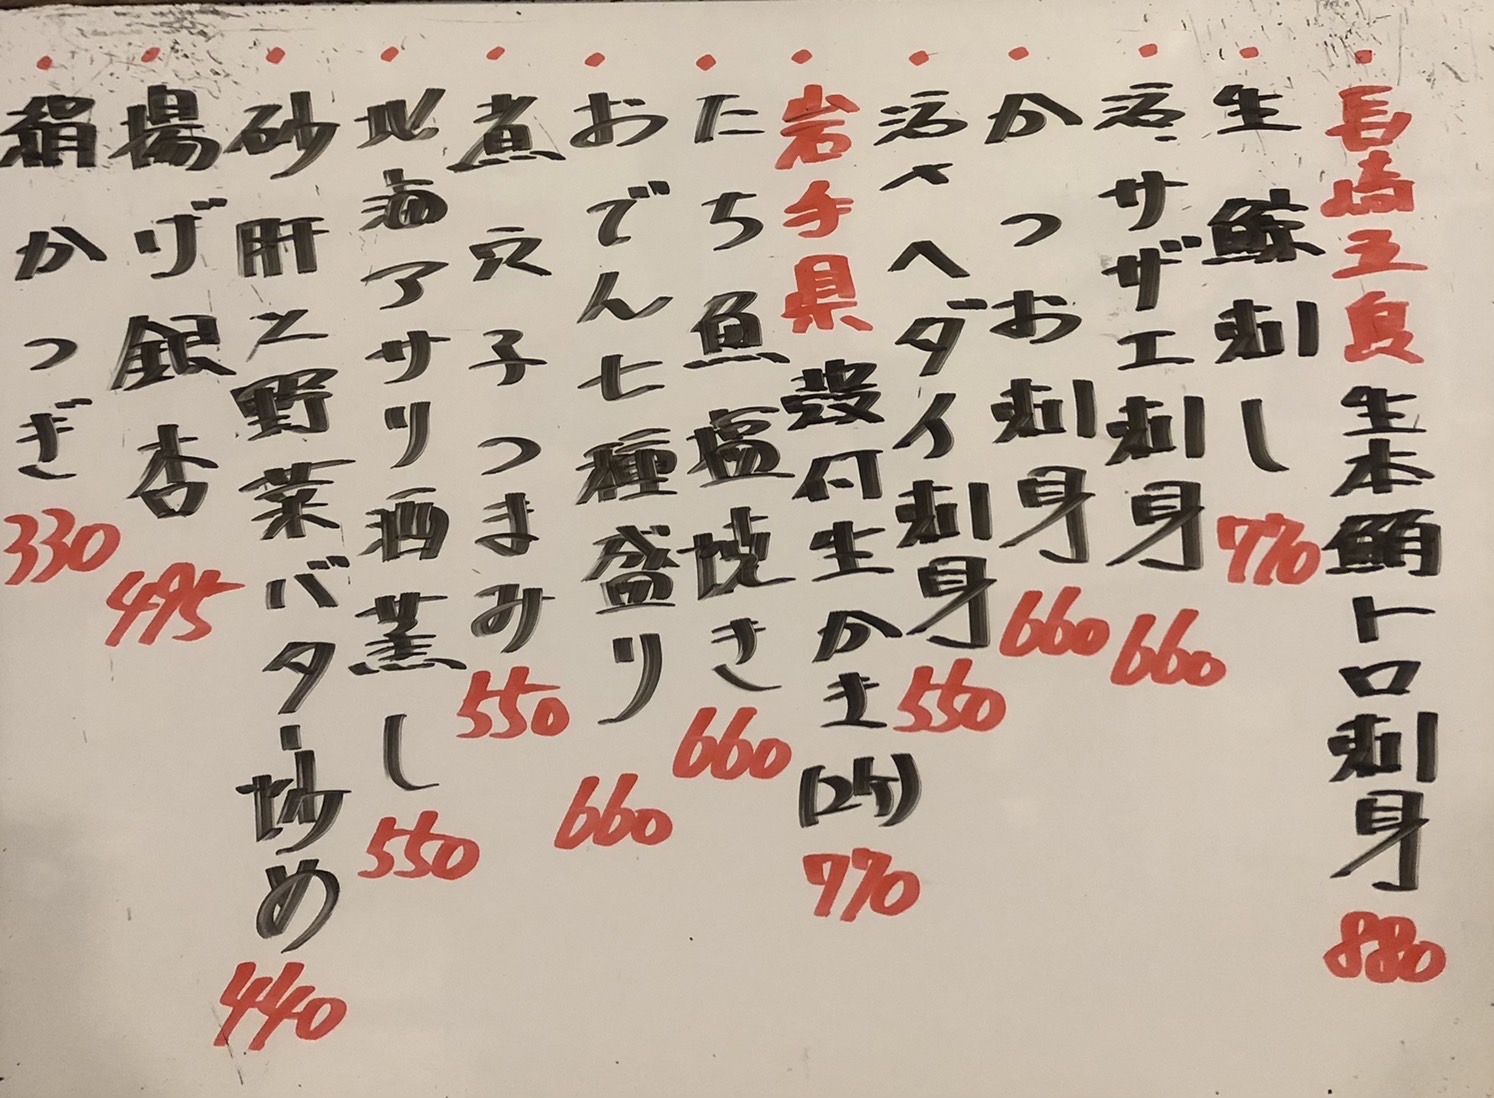 ・長崎五島生本鮪トロ刺身 880
・生鯨刺し 770
・活サザエ刺身 660
・かつお刺身 660
・活〆ヘダイ刺身 550
・岩手県殻付生かき(2ケ) 770
・たち魚塩焼き 660
・おでん七種盛り 660
・煮穴子つまみ 550
・北海アサリ酒蒸し 550
・砂肝と野菜バター炒め 440
・揚げ銀杏 495
・絹かつぎ 330